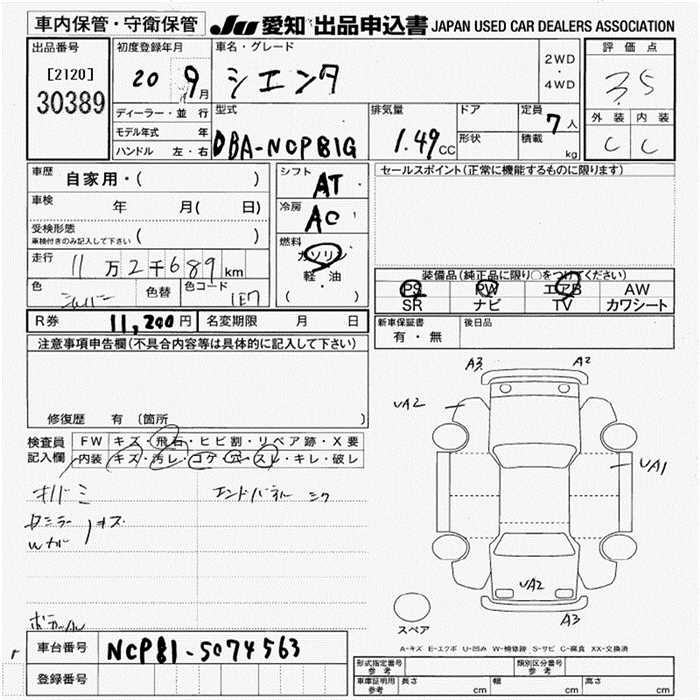 車内保管・守衛保管
JU 愛知 出品申込書 JAPAN USED CAR DEALERS ASSOCIATION
出品番号
[2120]
30389
初度登録年月
20 9月
車名・グレード
シエンタ
2WD
・
4WD
評価点
3.5
外装 内装
C C
ディーラー・並行
モデル年式 年
ハンドル 左・右
型式
DBA-NCP81G
排気量
1.49CC
ドア
形状
定員
7人
積載
kg
車歴
自家用・( )
車検
年 月( 日)
受検形態
車検付きのみ記入して下さい ( )
走行
11万2千689km
色
シルバー
色替
色コード
1E7
シフト
AT
冷房
AC
燃料
ガソリン
軽・油
( )
セールスポイント(正常に機能するものに限ります)
装備品(純正品に限り○をつけてください)
PS PW エアB AW
SR ナビ TV カワシート
R券 11,200円 名変期限 月 日
新車保証書
有・無
後日品
注意事項申告欄(不具合内容等は具体的に記入して下さい)
修復歴 有(箇所 )
検査員
記入欄
FW キズ・飛石・ヒビ割・リペア跡・X要
内装 キズ・汚レ・コゲ・穴・スレ・キレ・破レ
エンドパネル
A3 A2
UA2
UA1
UA2
A3
スペア
A-キズ E-エクボ U-凹み W-補修跡 S-サビ C-腐食 XX-交換済
車台番号 NCP81-5074563
登録番号
形式指定番号
参考
類別区分番号
参考
車庫証明用
参考
長さ cm 幅 cm 高さ cm